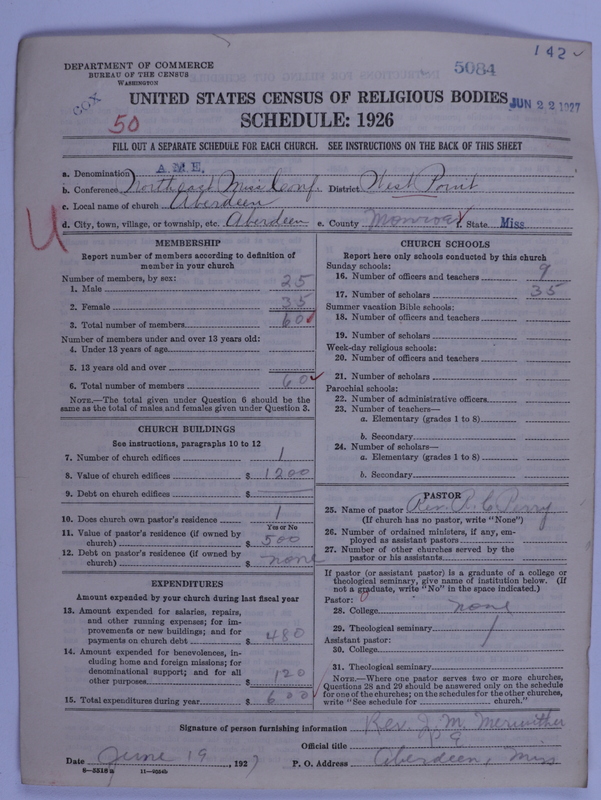 142 ✓
DEPARTMENT OF COMMERCE
BUREAU OF THE CENSUS
WASHINGTON
5084
COX
UNITED STATES CENSUS OF RELIGIOUS BODIES
JUN 22 1927
50
SCHEDULE: 1926
FILL OUT A SEPARATE SCHEDULE FOR EACH CHURCH. SEE INSTRUCTIONS ON THE BACK OF THIS SHEET
a. Denomination A.M.E.
b. Conference Northeast Miss Conf. District West Point
c. Local name of church Aberdeen
d. City, town, village, or township, etc. Aberdeen e. County Monroe f. State Miss
MEMBERSHIP
Report number of members according to definition of
member in your church
Number of members, by sex:
1. Male 25
2. Female 35
3. Total number of members 60
Number of members under and over 13 years old:
4. Under 13 years of age
5. 13 years old and over
6. Total number of members 60 ✓
NOTE.—The total given under Question 6 should be the
same as the total of males and females given under Question 3.
CHURCH BUILDINGS
See instructions, paragraphs 10 to 12
7. Number of church edifices 1
8. Value of church edifices $ 1200
9. Debt on church edifices $
10. Does church own pastor's residence 1
Yes or No
11. Value of pastor's residence (if owned by
church) $ 500
12. Debt on pastor's residence (if owned by
church) $ none
EXPENDITURES
Amount expended by your church during last fiscal year
13. Amount expended for salaries, repairs,
and other running expenses; for im-
provements or new buildings; and for
payments on church debt $ 480
14. Amount expended for benevolences, in-
cluding home and foreign missions; for
denominational support; and for all
other purposes $ 120
15. Total expenditures during year $ 600
CHURCH SCHOOLS
Report here only schools conducted by this church
Sunday schools:
16. Number of officers and teachers 9
17. Number of scholars 35
Summer vacation Bible schools:
18. Number of officers and teachers
19. Number of scholars
Week-day religious schools:
20. Number of officers and teachers
21. Number of scholars
Parochial schools:
22. Number of administrative officers
23. Number of teachers—
a. Elementary (grades 1 to 8)
b. Secondary
24. Number of scholars—
a. Elementary (grades 1 to 8)
b. Secondary
PASTOR
25. Name of pastor Rev. R. C. Perry
(If church has no pastor, write "None")
26. Number of ordained ministers, if any, em-
ployed as assistant pastors
27. Number of other churches served by the
pastor or his assistants
If pastor (or assistant pastor) is a graduate of a college or
theological seminary, give name of institution below. (If
not a graduate, write "No" in the space indicated.)
Pastor:
28. College none
29. Theological seminary
Assistant pastor:
30. College
31. Theological seminary
NOTE.—Where one pastor serves two or more churches,
Questions 28 and 29 should be answered only on the schedule
for one of the churches; on the schedules for the other churches,
write "See schedule for church."
Signature of person furnishing information Rev. J. M. Meriwither
Official title P E
Date June 19, 1927 P. O. Address Aberdeen, Miss